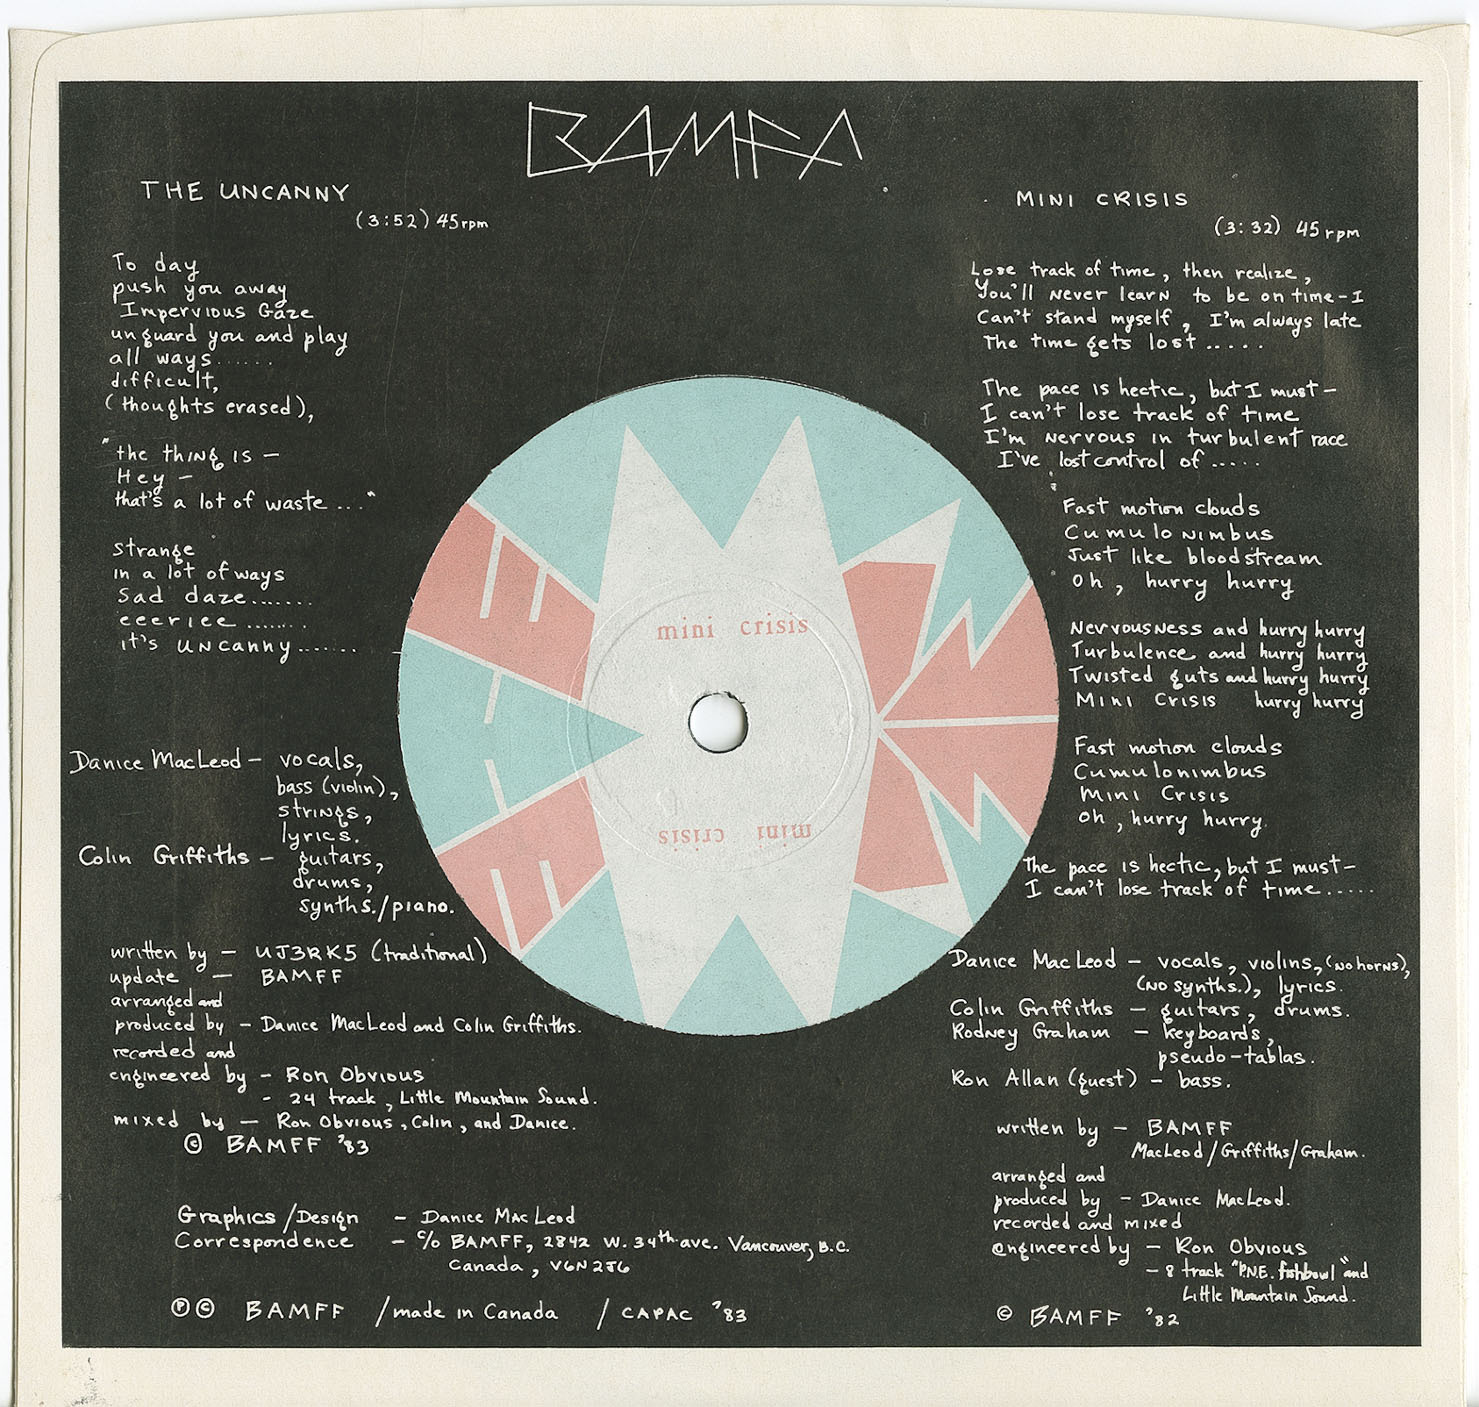 BAMFF
THE UNCANNY
(3:52) 45rpm
To day
push you away
Impervious Gaze
unguard you and play
all ways......
difficult,
(thoughts erased),
"the thing is —
Hey —
that's a lot of waste ..."
strange
in a lot of ways
Sad daze.......
eeeriee.......
it's uncanny......
Danice MacLeod — vocals,
bass (violin),
strings,
lyrics.
Colin Griffiths — guitars,
drums,
synths./piano.
written by — UJ3RK5 (traditional)
update — BAMFF
arranged and
produced by — Danice MacLeod and Colin Griffiths.
recorded and
engineered by — Ron Obvious
- 24 track, Little Mountain Sound.
mixed by — Ron Obvious, Colin, and Danice.
© BAMFF '83
Graphics/Design — Danice MacLeod
Correspondence — c/o BAMFF, 2842 W. 34th ave. Vancouver, B.C.
Canada, V6N 2J6
℗ © BAMFF /made in Canada / CAPAC '83
mini crisis
mini crisis
MINI CRISIS
(3:32) 45rpm
Lose track of time, then realize,
You'll never learn to be on time-I
Can't stand myself, I'm always late
The time gets lost.....
The pace is hectic, but I must—
I can't lose track of time
I'm nervous in turbulent race
I've lost control of.....
Fast motion clouds
Cumulo nimbus
Just like bloodstream
Oh, hurry hurry
Nervousness and hurry hurry
Turbulence and hurry hurry
Twisted guts and hurry hurry
Mini Crisis hurry hurry
Fast motion clouds
Cumulonimbus
Mini Crisis
Oh, hurry hurry.
The pace is hectic, but I must—
I can't lose track of time.....
Danice MacLeod — vocals, violins, (no horns),
(no synths.), lyrics.
Colin Griffiths — guitars, drums.
Rodney Graham — keyboards,
pseudo-tablas.
Ron Allan (guest) — bass.
written by — BAMFF
MacLeod/Griffiths/Graham.
arranged and
produced by — Danice MacLeod.
recorded and mixed
engineered by — Ron Obvious
— 8 track "P.N.E. fishbowl" and
Little Mountain Sound.
© BAMFF '82